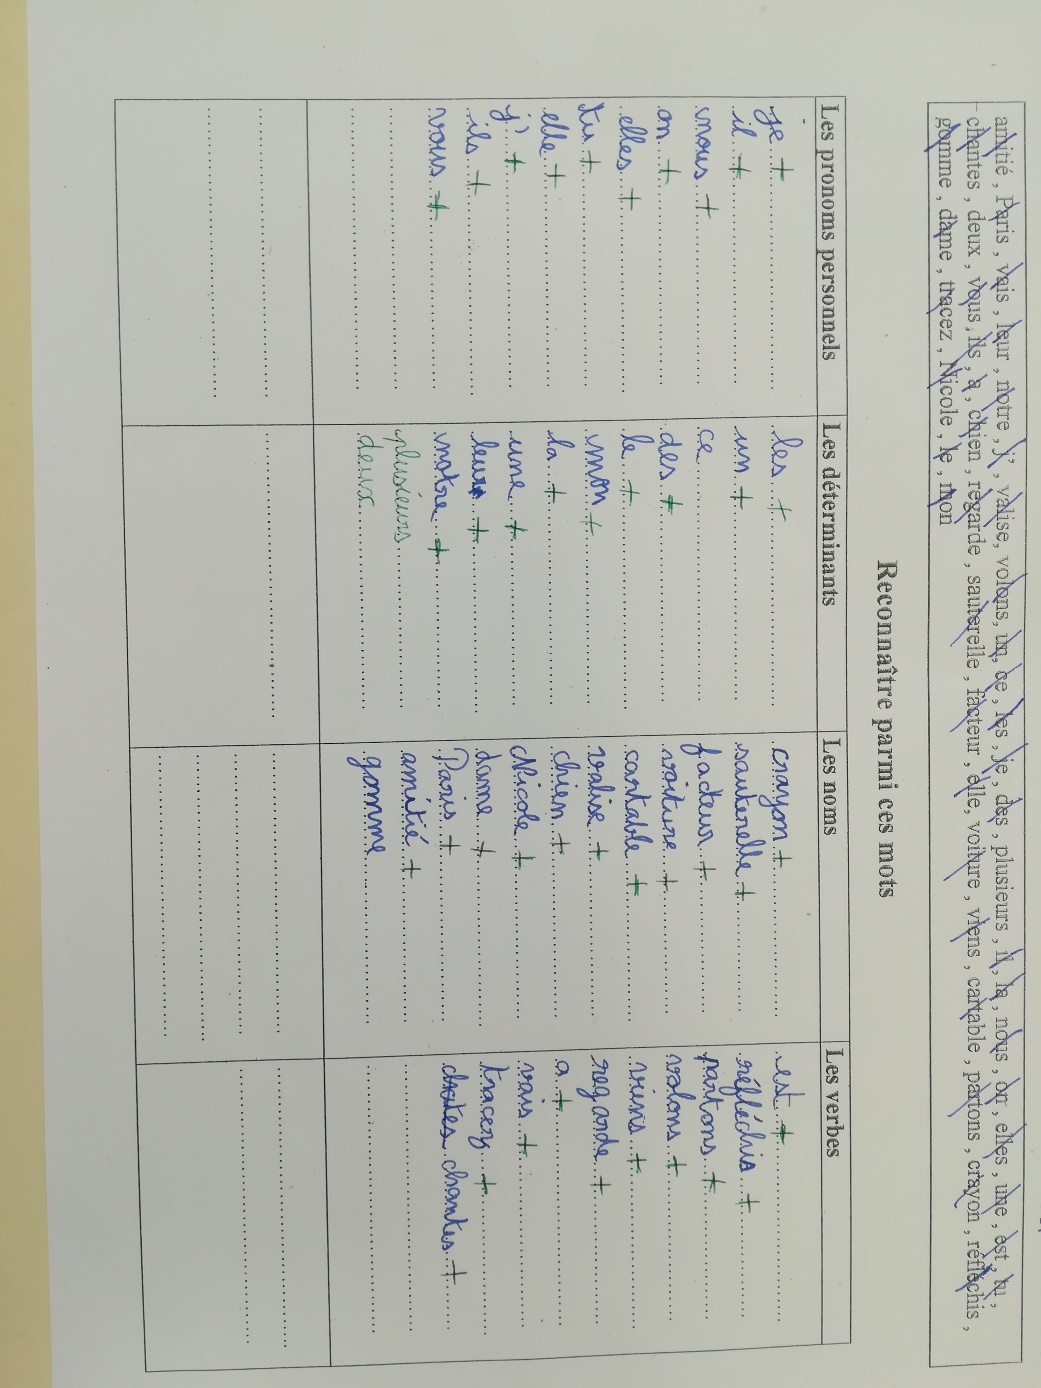 amitié , Paris , vais , leur , notre , j' , valise, volons, un, ce , les , je , des , plusieurs , il , la , nous , on , elles , une , est , tu ,
chantes , deux , vous , ils , a , chien , regarde , sauterelle , facteur , elle, voiture , viens , cartable , partons , crayon , réfléchis ,
gomme , dame , tracez , Nicole , le , mon
Reconnaître parmi ces mots
Les pronoms personnels Les déterminants Les noms Les verbes
je + les + crayon + est +
il + un + sauterelle + réfléchis +
nous + ce facteur + partons +
on + des + voiture + volons +
elles + le + cartable + viens +
tu + mon + valise + regarde +
elle + la + chien + a +
j' + une + Nicole + vais +
ils + leur + dame + tracez +
vous + notre + Paris + chantes +
plusieurs amitié +
deux gomme